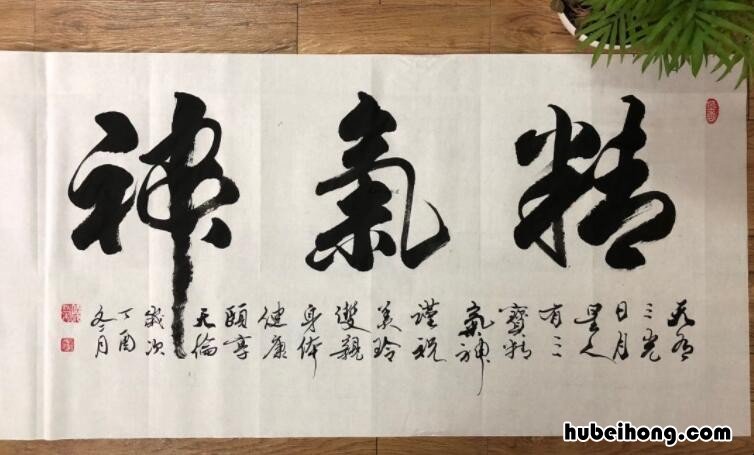 精氣神
天有
三光
日月
星人
有三
寶精
氣神
謹祝
美玲
雙親
身体
健康
頤享
天倫
歲次
丁酉
冬月
hubeihong.com